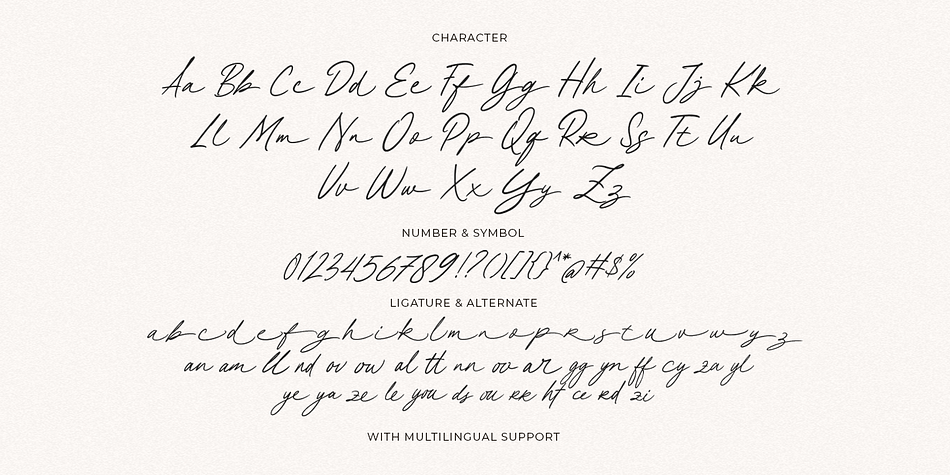 CHARACTER
Aa Bb Cc Dd Ee Ff Gg Hh Ii Jj Kk
Ll Mm Nn Oo Pp Qq Rr Ss Tt Uu
Vv Ww Xx Yy Zz
NUMBER & SYMBOL
0123456789!?()[]{}^*@#$%
LIGATURE & ALTERNATE
a b c d e f g h i k l m n o p r s t u v w y z
an am ll nd ov ow al tt nn oo ar gg yn ff cy za yl
ye ya ze le you ds ou rr ht ce rd zi
WITH MULTILINGUAL SUPPORT